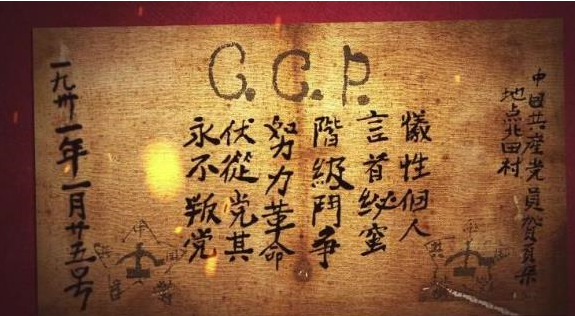 C.C.P.
中國共産党員賀頁朵
地点北田村
犠性個人
言首紗蜜
階級鬥争
努力革命
伏從党其
永不叛党
一九卅一年一月廿五号